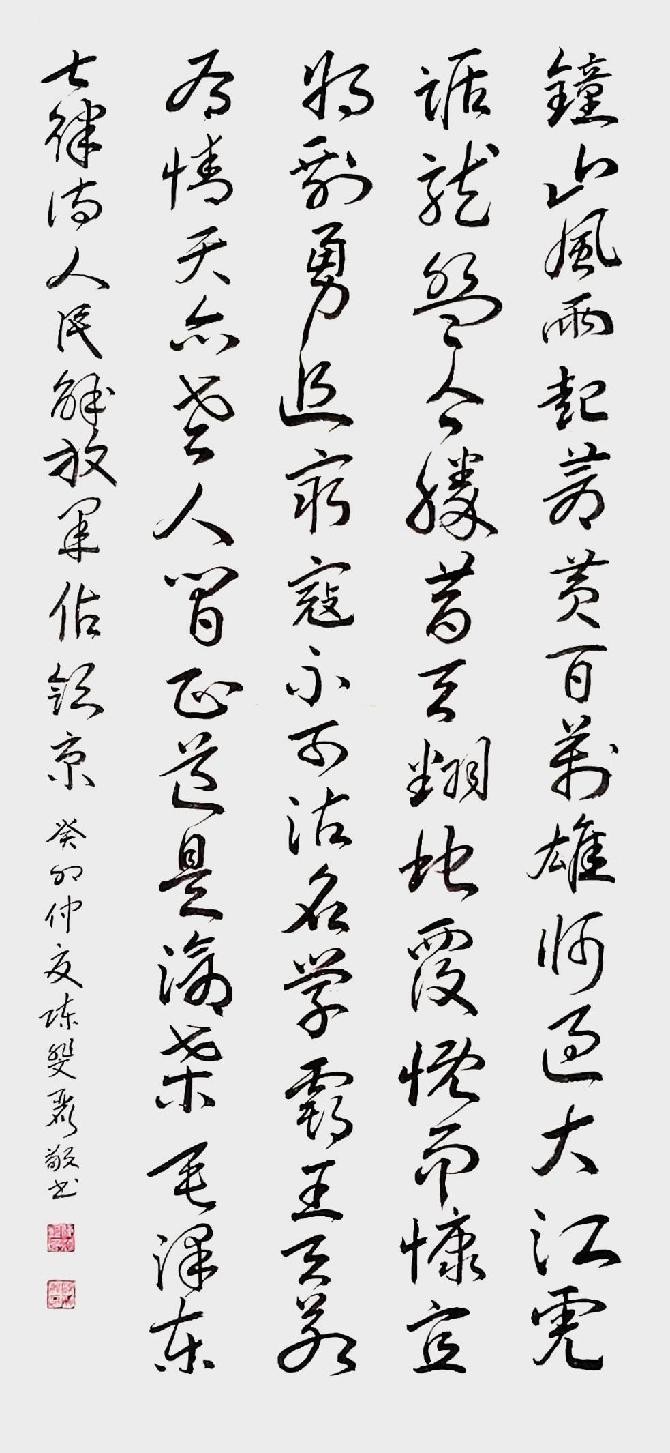 鐘山風雨起蒼黃百萬雄师過大江虎
踞龍盤今勝昔天翻地覆慨而慷宜
将剩勇追窮寇不可沽名学霸王天若
有情天亦老人間正道是滄桑 毛澤東
七律诗人民解放軍佔領京 癸卯仲夏陈麗敬书